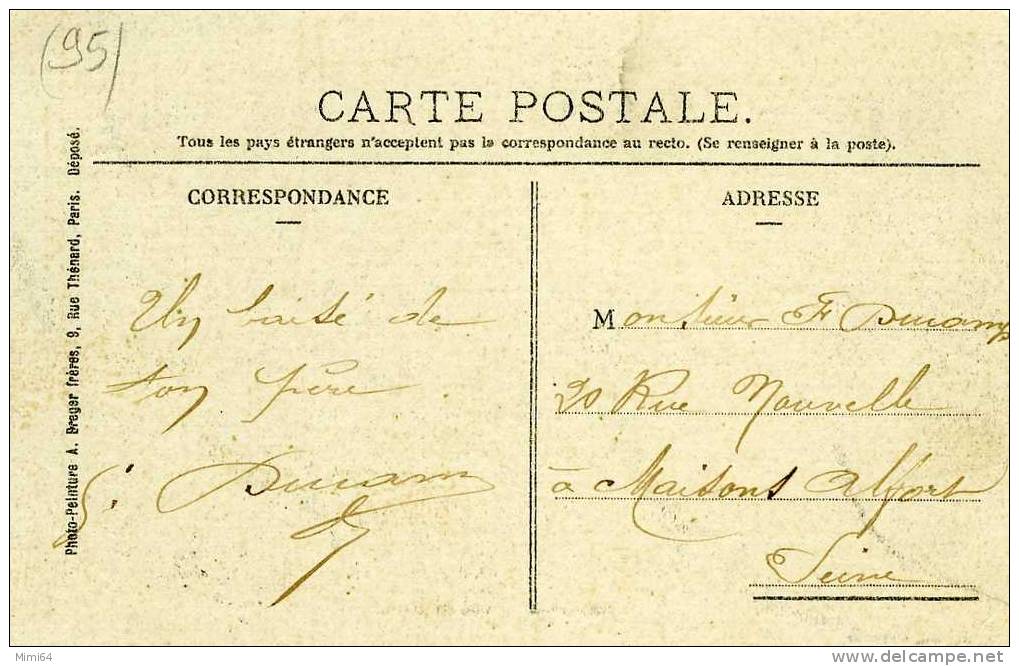 (95)
CARTE POSTALE.
Tous les pays étrangers n'acceptent pas la correspondance au recto. (Se renseigner à la poste).
Photo-Peinture A. Breger frères, 9, Rue Thénard, Paris. Déposé.
CORRESPONDANCE
Un baisé de
ton père
ADRESSE
Monsieur F
20 Rue Nouvelle
à Maisons Alfort
Seine
Mimi64
delcampe.net